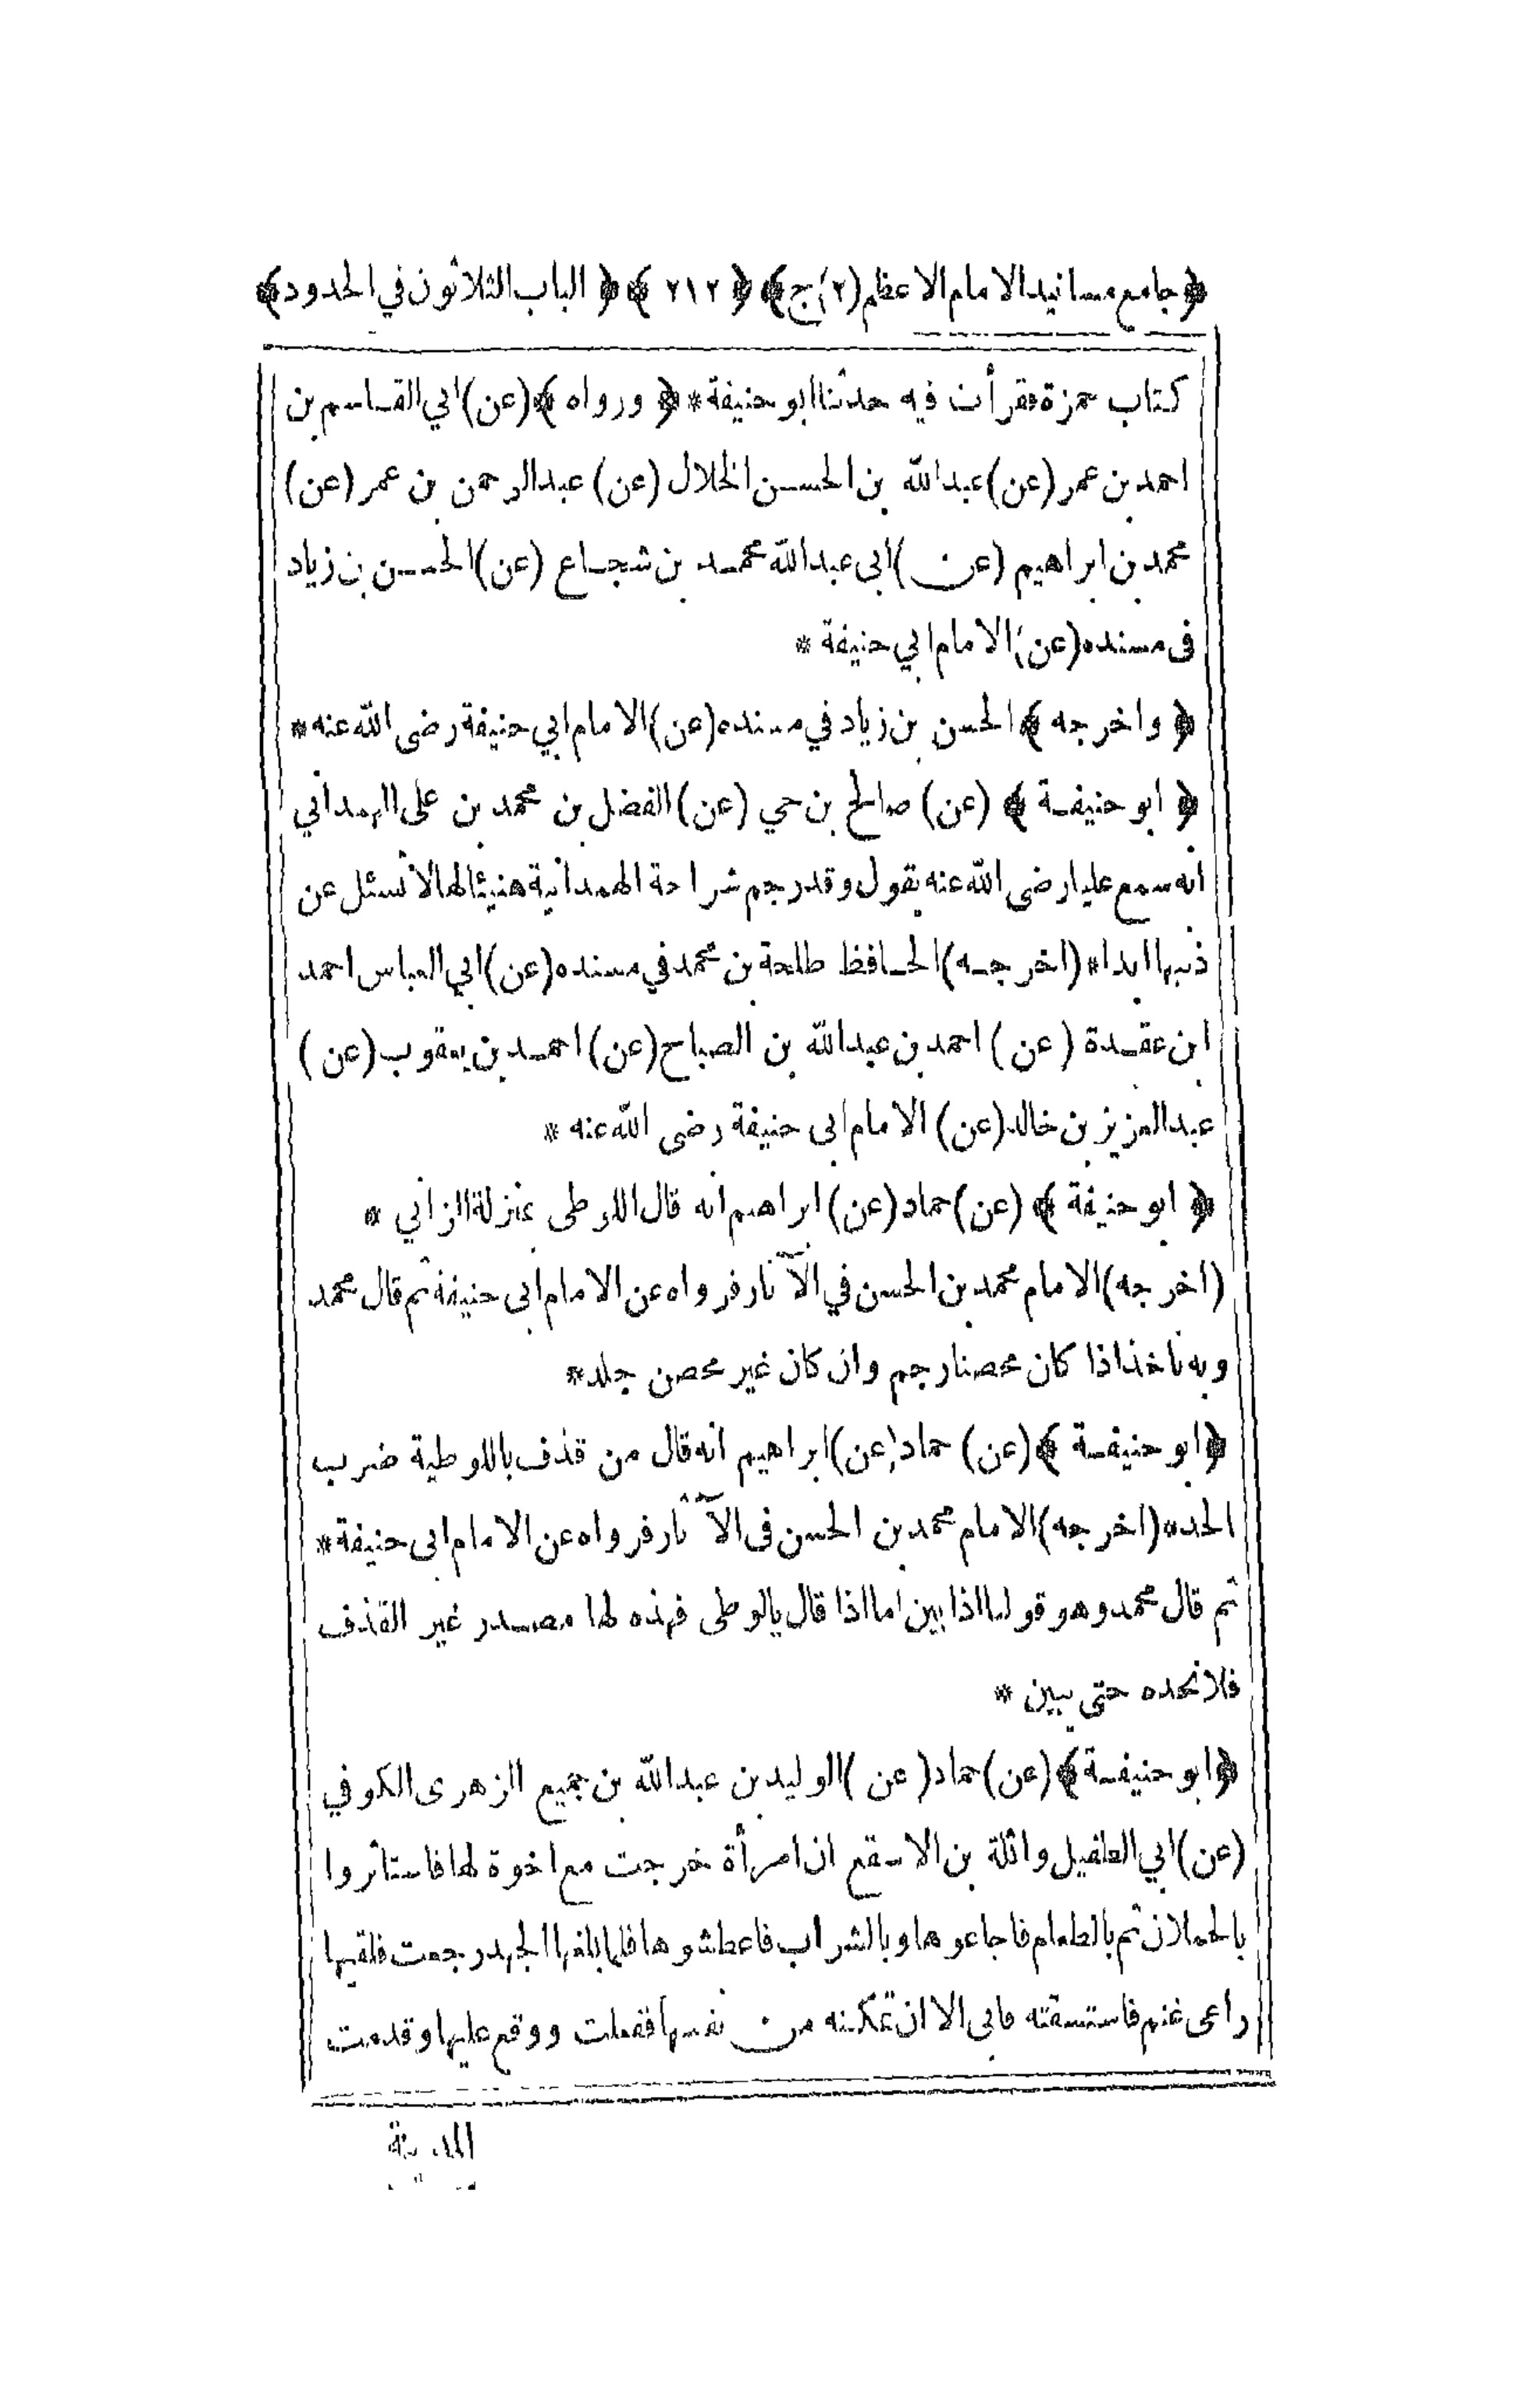 ﴿ جامع مسانيد الامام الاعظم (٢) ج ﴾ ﴿ ٢١٢ ﴾ ﴿ الباب الثلاثون في الحدود ﴾
كتاب حمزة فقرأت فيه حدثنا ابو حنيفة * ﴿ ورواه ﴾ (عن) ابي القاسم بن
احمد بن عمر (عن) عبد الله بن الحسن الخلال (عن) عبد الرحمن بن عمر (عن)
محمد بن ابراهيم (عن) ابى عبد الله محمد بن شجاع (عن) الحسن بن زياد
فى مسنده (عن) الامام ابي حنيفة *
﴿ واخرجه ﴾ الحسن بن زياد في مسنده (عن) الامام ابي حنيفة رضى الله عنه *
﴿ ابو حنيفة ﴾ (عن) صالح بن حي (عن) الفضل بن محمد بن على الهمداني
انه سمع عليا رضى الله عنه يقول وقد رجم شراحة الهمدانية هنيئا لها لا تسئل عن
ذنبها ابدا * (اخرجه) الحافظ طلحة بن محمد في مسنده (عن) ابي العباس احمد
ابن عقدة (عن) احمد بن عبد الله بن الصباح (عن) احمد بن يعقوب (عن)
عبد العزيز بن خالد (عن) الامام ابى حنيفة رضى الله عنه *
﴿ ابو حنيفة ﴾ (عن) حماد (عن) ابراهيم انه قال اللوطى بمنزلة الزاني *
(اخرجه) الامام محمد بن الحسن في الآثار فرواه عن الامام ابى حنيفة ثم قال محمد
وبه ناخذ اذا كان محصنا رجم وان كان غير محصن جلد *
﴿ ابو حنيفة ﴾ (عن) حماد (عن) ابراهيم انه قال من قذف باللوطية ضرب
الحد * (اخرجه) الامام محمد بن الحسن فى الآثار فرواه عن الامام ابى حنيفة *
ثم قال محمد وهو قولنا اذا بين اما اذا قال يالوطى فهذه لها مصدر غير القذف
فلا نحده حتى يبين *
﴿ ابو حنيفة ﴾ (عن) حماد (عن) الوليد بن عبد الله بن جميع الزهرى الكوفي
(عن) ابي الطفيل واثلة بن الاسقع ان امرأة خرجت مع اخوة لها فاستاثروا
بالحملان ثم بالطعام فاجاعوها وبالشراب فاعطشوها فلما بلغها الجهد رجعت فلقيها
راعى غنم فاستسقته فابى الا ان تمكنه من نفسها ففعلت ووقع عليها وقدمت
المدينة